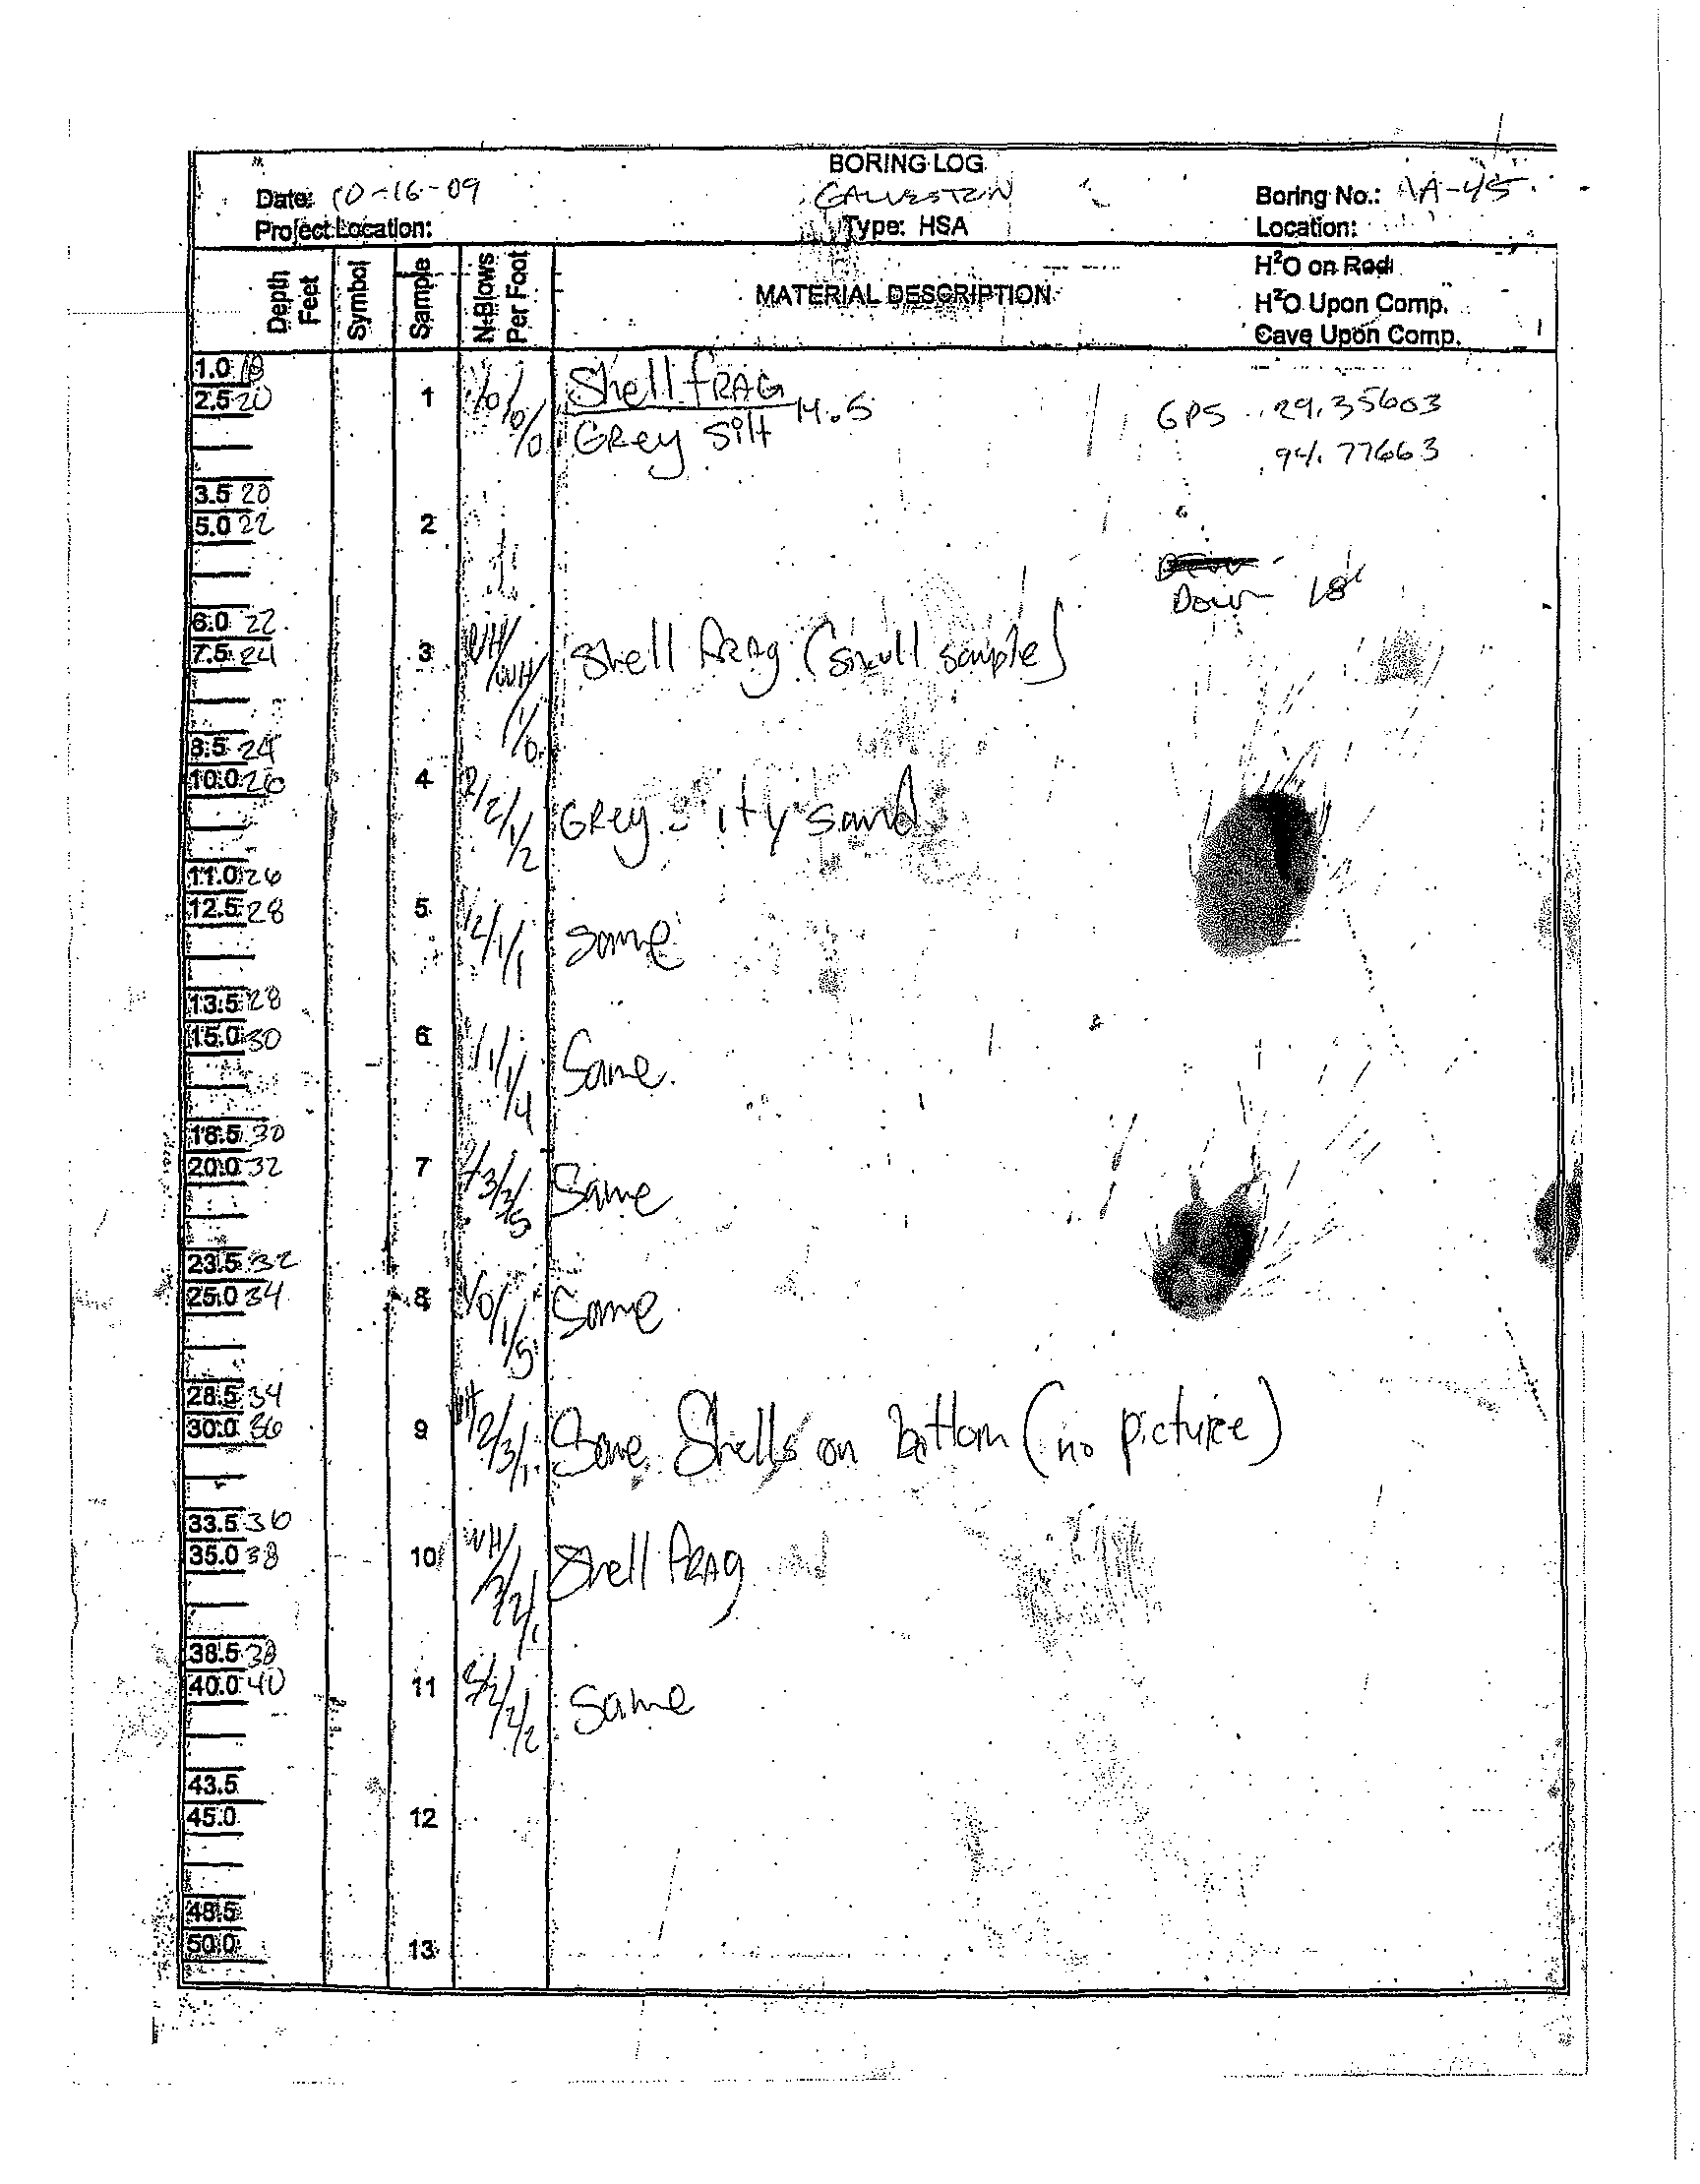 BORING LOG
Date: 10-16-09 GALVESTON Boring No.: AA-45
Project Location: Type: HSA Location:
Depth Feet Symbol Sample N-Blows Per Foot MATERIAL DESCRIPTION H²O on Rod
H²O Upon Comp.
Cave Upon Comp.
1.0 18 Shell fRAG
2.5 20 1 GPS 29.35603
Grey Silt
94.77663
3.5 20
5.0 22 2
Down 18'
6.0 22
7.5 24 3 WH/WH/1/0 Shell fRAg (small sample)
8.5 24
10.0 26 4 2/2/1/2 GRey s ilty sand
11.0 26
12.5 28 5 1/2/1/1 Same
13.5 28
15.0 30 6 1/1/1/4 Same
18.5 30
20.0 32 7 2/3/3/5 Same
23.5 32
25.0 34 8 1/0/1/5 Same
28.5 34
30.0 36 9 WH/2/3/1 Some Shells on bottom (no picture)
33.5 36
35.0 38 10 WH/3/2/1 Shell fRAg
38.5 38
40.0 40 11 /2/2/2 Same
43.5
45.0 12
48.5
50.0 13